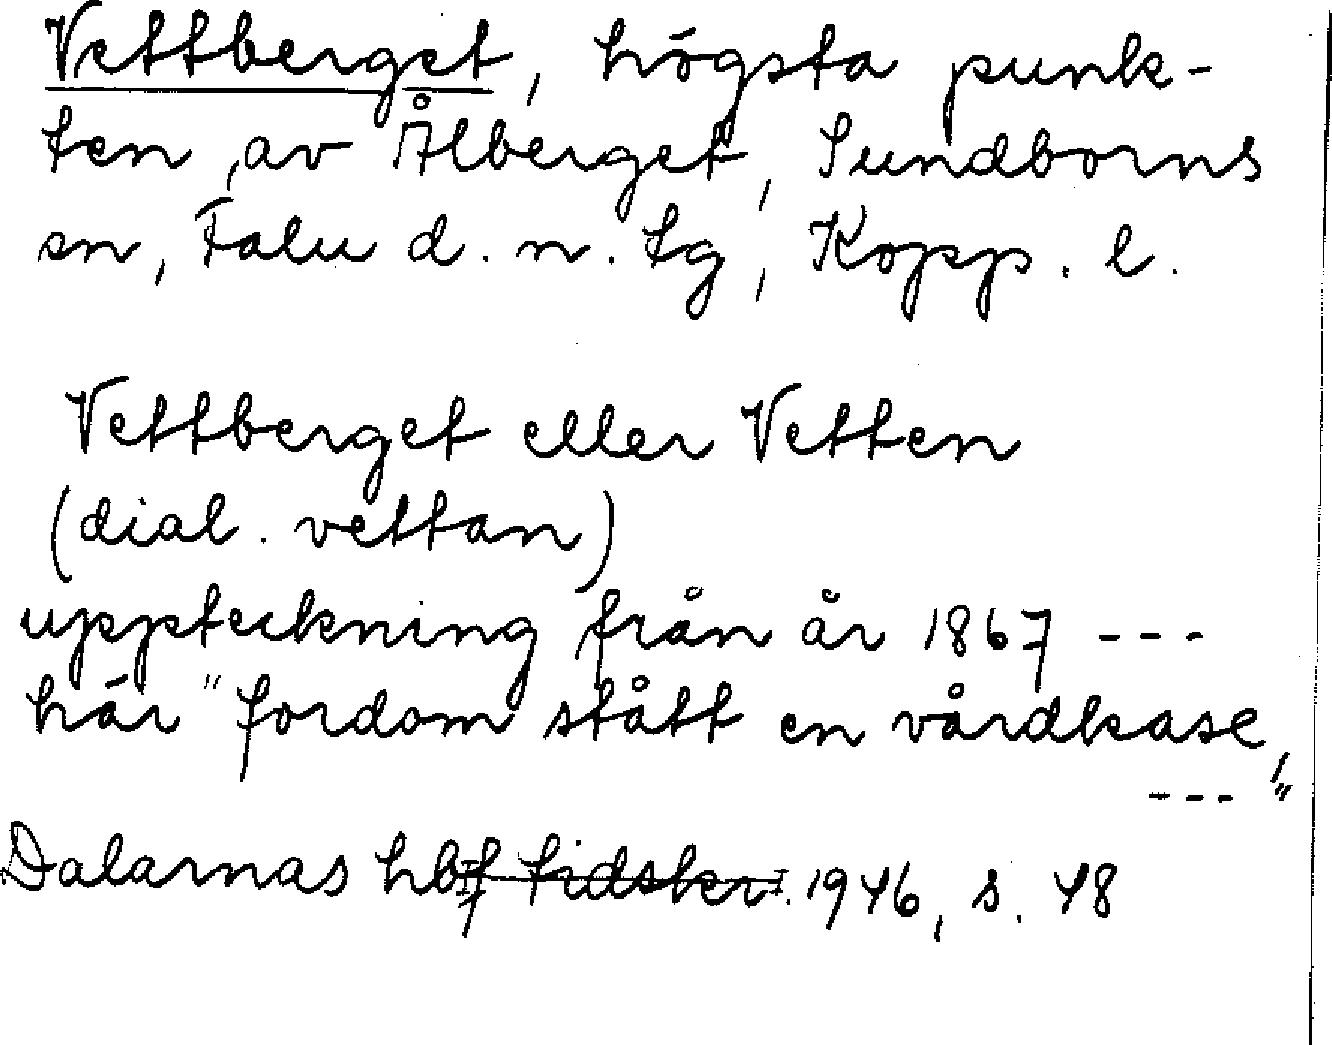 Vettberget, högsta punk-
ten av Ålberget, Sundborns
sn, Falu d. n. tg, Kopp. l.
Vettberget eller Vetten
(dial. vettan)
uppteckning från år 1867 ---
här "fordom stått en vårdkase,
--- "
Dalarnas hbf tidskr. 1946, s. 48